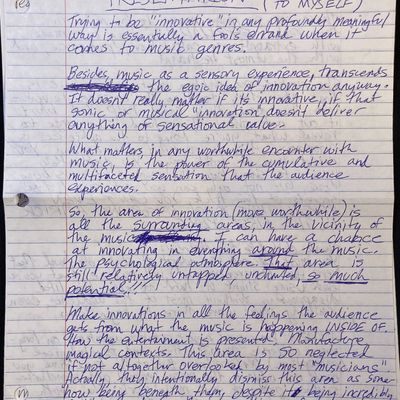 (TO MYSELF)
Trying to be "innovative" in any profoundly meaningful
way is essentially a fools errand when it
comes to music genres.
Besides, music as a sensory experience, transcends
the egoic idea of innovation anyway.
It doesn't really matter if its innovative, if that
sonic or musical "innovation" doesn't deliver
anything of sensational value.
What matters in any worthwhile encounter with
music, is the power of the cumulative and
multifaceted sensation that the audience
experiences.
So, the area of innovation (more worthwhile) is
all the surrounding areas, in the vicinity of
the music. I can have a chance
at innovating in everything around the music.
The psychological atmosphere. That area is
still relatively untapped, uncharted, so much
potential!!!
Make innovations in all the feelings the audience
gets from what the music is happening INSIDE OF.
How the entertainment is presented. Manufacture
magical contexts. This area is SO neglected
if not altogether overlooked by most "musicians".
Actually they intentionally dismiss this area as some
how being beneath them, despite it being incredibly